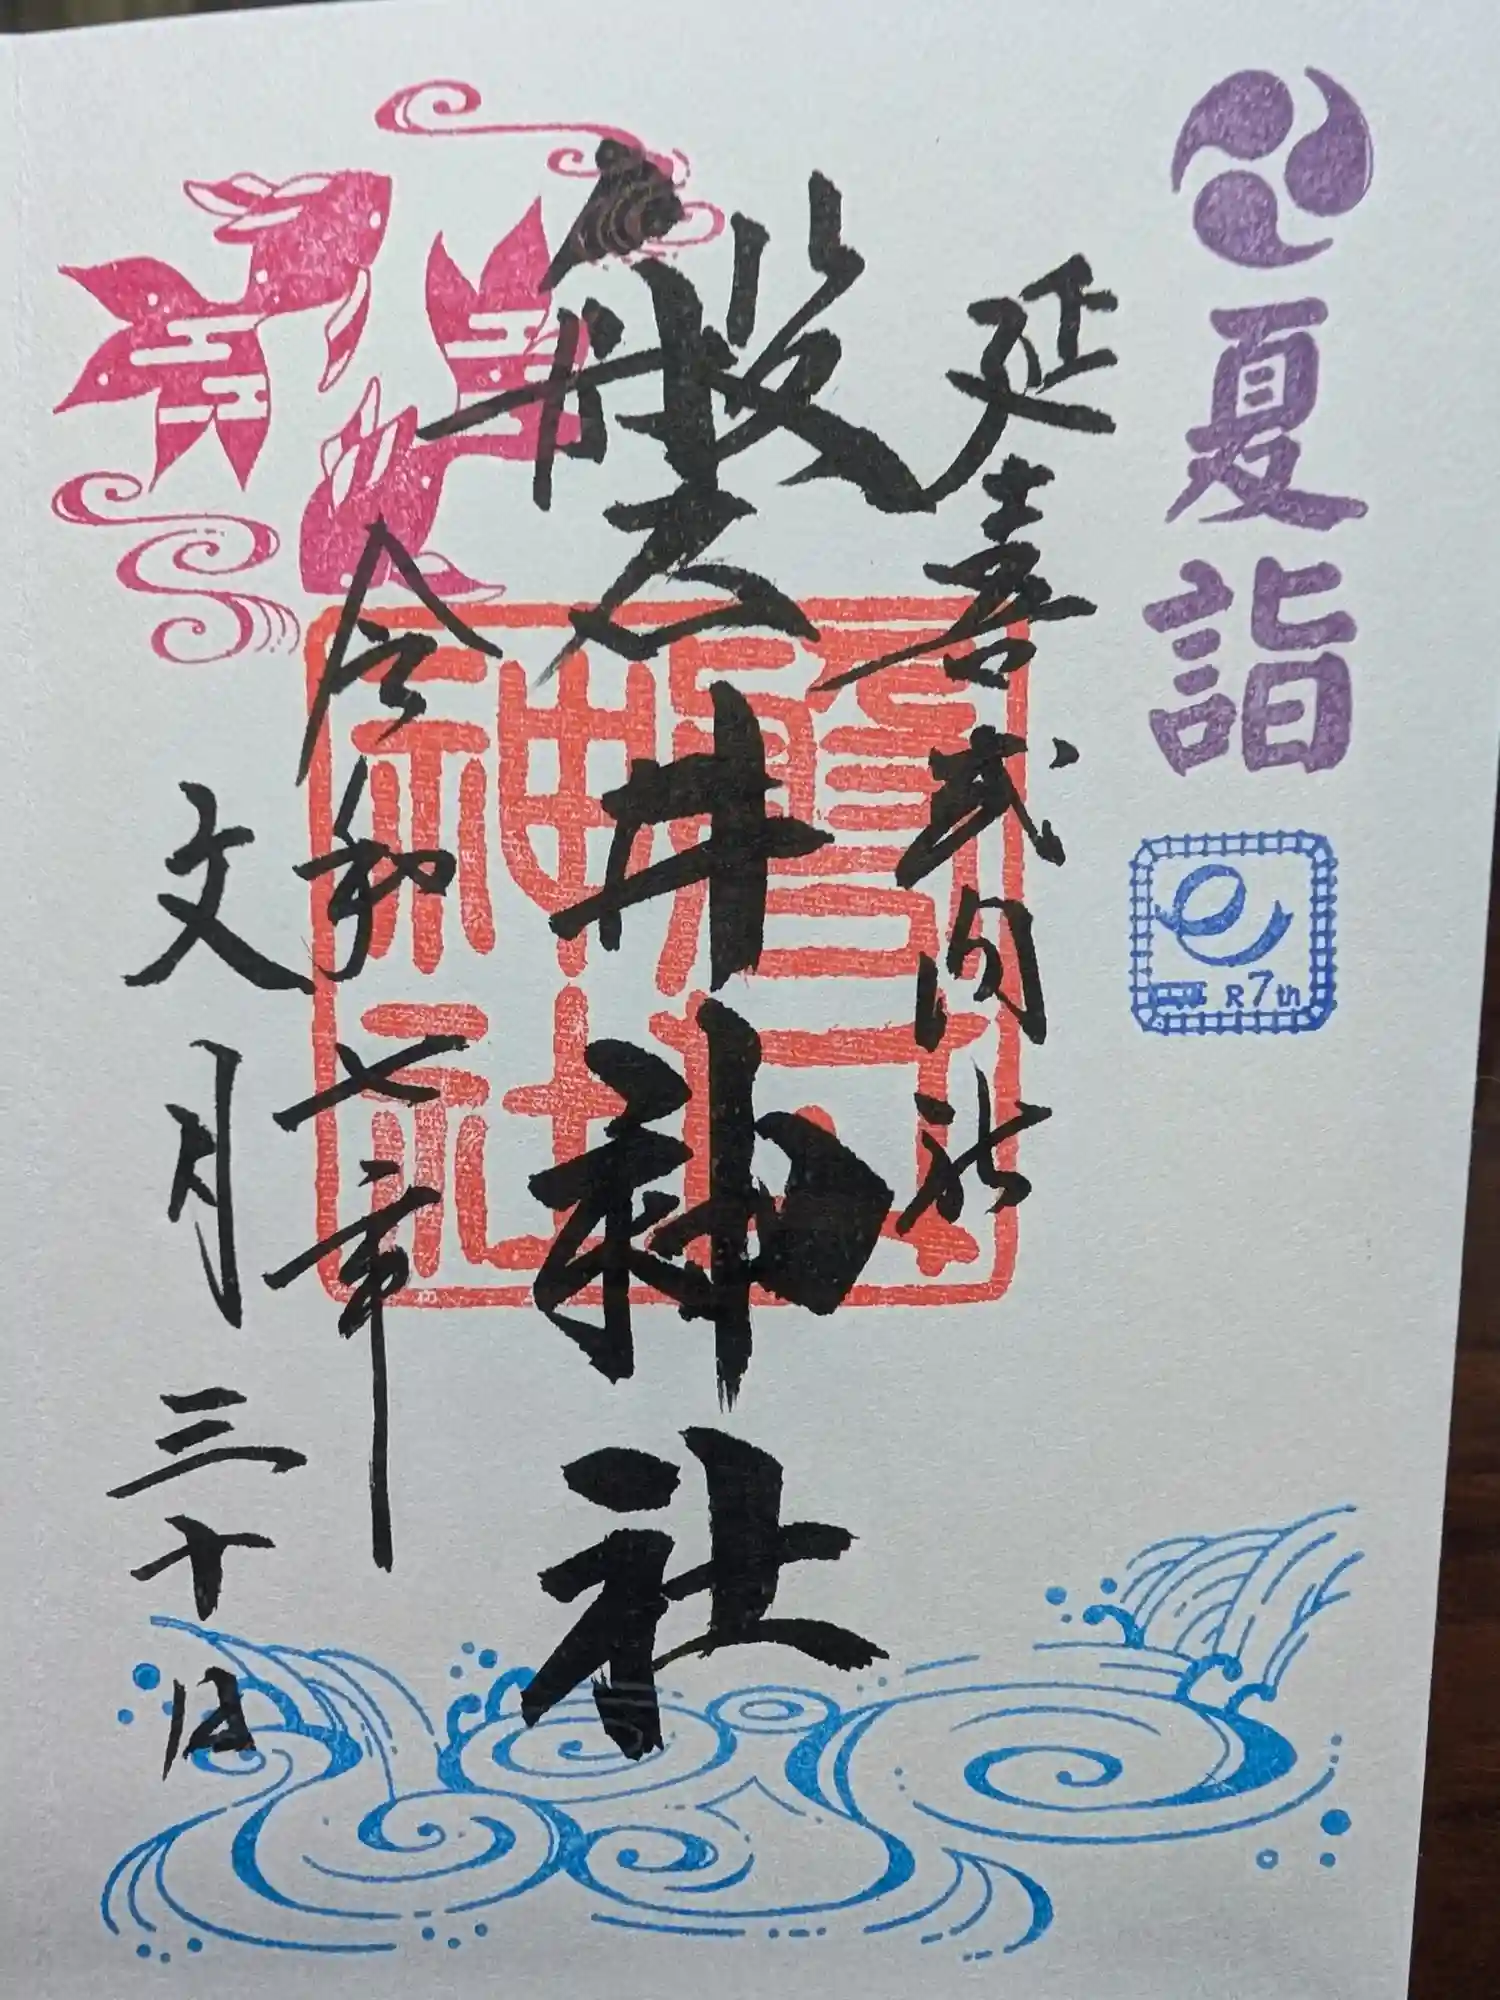 夏詣
R7th
延喜式内社
磐井神社
令和七年
文月三十日